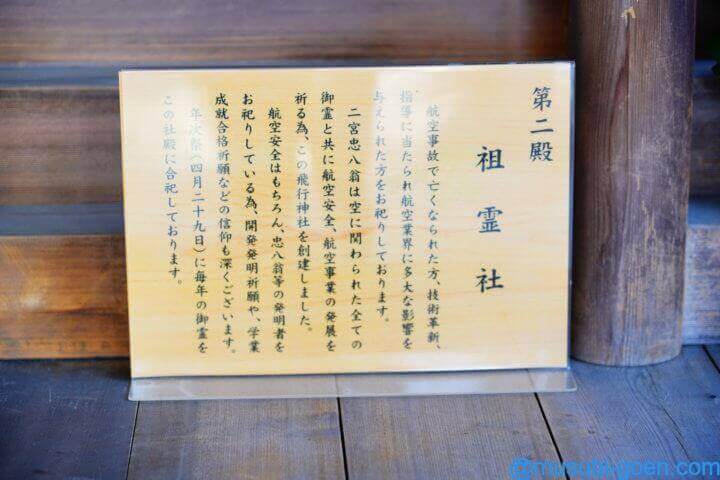 第二殿
祖霊社
航空事故で亡くなられた方、技術革新、
指導に当たられ航空業界に多大な影響を
与えられた方をお祀りしております。
二宮忠八翁は空に関わられた全ての
御霊と共に航空安全、航空事業の発展を
祈る為、この飛行神社を創建しました。
航空安全はもちろん、忠八翁等の発明者を
お祀りしている為、開発発明祈願や、学業
成就合格祈願などの信仰も深くございます。
年次祭(四月二十九日)に毎年の御霊を
この社殿に合祀しております。
@musubi-goen.com